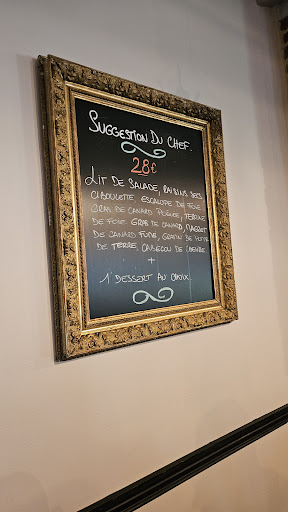 SUGGESTION DU CHEF.
28€
LIT DE SALADE, RAISINS SECS
CIBOULETTE ESCALOPE DE FOIE
GRAS DE CANARD POÊLÉE, TERRINE
DE FOIE GRAS DE CANARD, MAGRET
DE CANARD FUMÉ, GRATIN DE POMME
DE TERRE, CABECOU DE CHÈVRE.
+
1 DESSERT AU CHOIX.